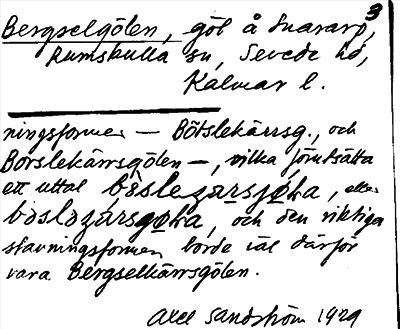 3
Bergselgölen, göl å Snararp,
Rumskulla sn, Sevede hd,
Kalmar l.
ningsformer — Bötslekärrsg., och
Borslekärrsgölen —, vilka förutsätta
ett uttal, eller
och den riktiga
stavningsformen borde väl därför
vara Bergselkärrsgölen.
Axel Sandström 1929